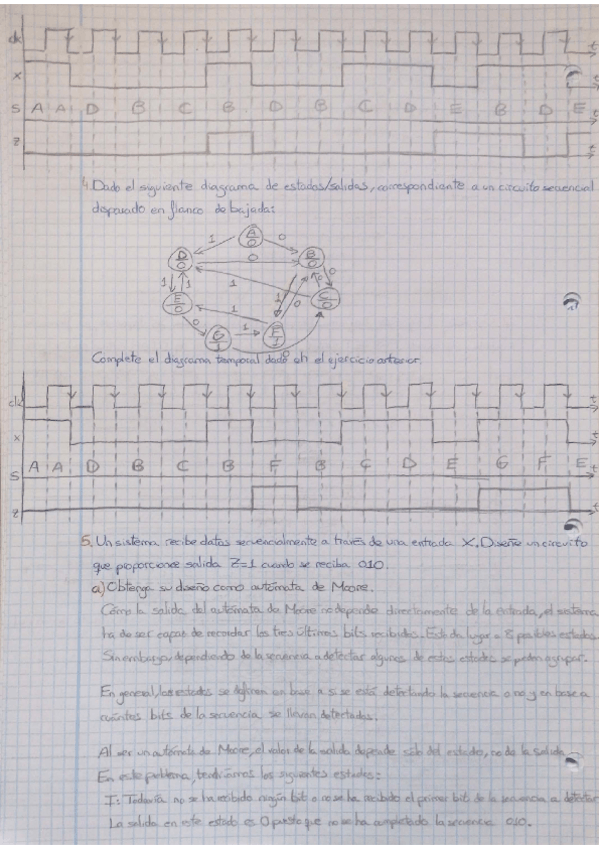 clk
t
X
t
S A A D B C B D B C D E B D E t
Z
t
4. Dado el siguiente diagrama de estados/salidas, correspondiente a un circuito secuencial
disparado en flanco de bajada:
A 0
1 0
D 0
0
B 0
1 1 1 0
E 0
1
C 0
0 G 1 1 F 1
Complete el diagrama temporal dado en el ejercicio anterior.
clk
t
X
t
S A A D B C B F B C D E G F E t
Z
t
5. Un sistema recibe datos secuencialmente a través de una entrada X. Diseñe un circuito
que proporcione salida Z=1 cuando se reciba 010.
a) Obtenga su diseño como autómata de Moore.
Como la salida del autómata de Moore no depende directamente de la entrada, el sistema
ha de ser capaz de recordar los tres últimos bits recibidos. Esto da lugar a 8 posibles estados.
Sin embargo, dependiendo de la secuencia a detectar algunos de estos estados se pueden agrupar.
En general, los estados se definen en base a si se está detectando la secuencia o no y en base a
cuántos bits de la secuencia se llevan detectados.
Al ser un autómata de Moore, el valor de la salida depende sólo del estado, no de la salida.
En este problema, tendríamos los siguientes estados:
I: Todavía no se ha recibido ningún bit o no se ha recibido el primer bit de la secuencia a detectar
La salida en este estado es 0 puesto que no se ha completado la secuencia 010.